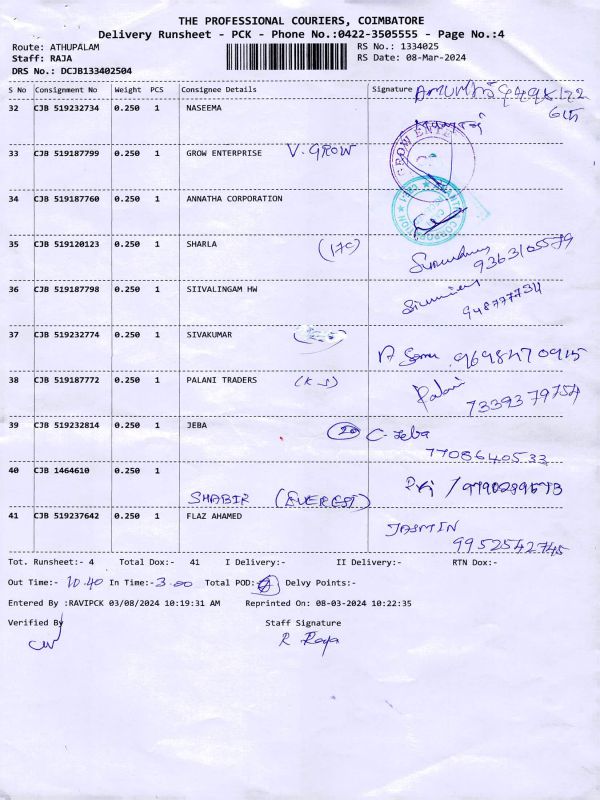 THE PROFESSIONAL COURIERS, COIMBATORE
Delivery Runsheet - PCK - Phone No.:0422-3505555 - Page No.:4
Route: ATHUPALAM RS No.: 1334025
Staff: RAJA RS Date: 08-Mar-2024
DRS No.: DCJB133402504
S No Consignment No Weight PCS Consignee Details Signature
32 CJB 519232734 0.250 1 NASEEMA
33 CJB 519187799 0.250 1 GROW ENTERPRISE V. GROW
34 CJB 519187760 0.250 1 ANNATHA CORPORATION
35 CJB 519120123 0.250 1 SHARLA (17C) 9363105579
36 CJB 519187798 0.250 1 SIIVALINGAM HW
37 CJB 519232774 0.250 1 SIVAKUMAR 9698470915
38 CJB 519187772 0.250 1 PALANI TRADERS (K S) Palani
7339379754
39 CJB 519232814 0.250 1 JEBA C. Jeba
7708640533
40 CJB 1464610 0.250 1
SHABIR (EVEREST)
41 CJB 519237642 0.250 1 FLAZ AHAMED JASMIN
9952542745
Tot. Runsheet:- 4 Total Dox:- 41 I Delivery:- II Delivery:- RTN Dox:-
Out Time:- 10.40 In Time:- 3.00 Total POD: Delvy Points:-
Entered By :RAVIPCK 03/08/2024 10:19:31 AM Reprinted On: 08-03-2024 10:22:35
Verified By Staff Signature
R Raja